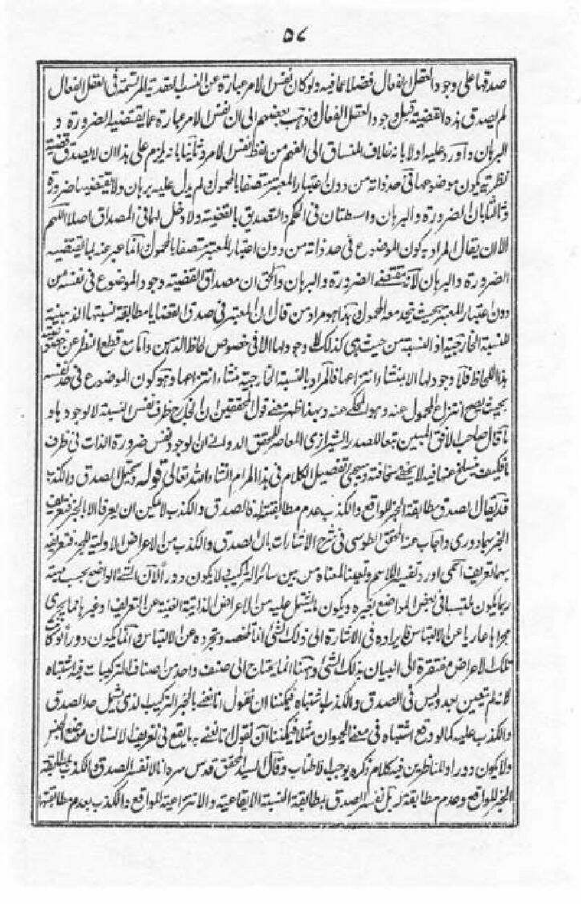 ٥٨
صدقها على وجود العقل الفعال فضلا عما فيه ولو كان نفس الامر عبارة عن النسب العقدية المرتسمة فى العقل الفعال
لم يصدق هذه القضية قبل وجود العقل الفعال وذهب بعضهم الى ان نفس الامر عبارة عما يقتضيه الضرورة و
البرهان واورد عليه اولا بانه خلاف المنساق الى الفهم من لفظ نفس الامر وثانيا بانه يلزم على هذا ان لا يصدق قضية
نظرية يكون موضوعها فى حد ذاته من دون اعتبار المعتبر متصفا بالمحمول لم يدل عليه برهان ولا يقتضيها ضرورة
وثالثا بان الضرورة والبرهان واسطتان فى الحكم والتصديق بالقضية ولا دخل لهما فى المصداق اصلا اللهم
الا ان يقال المراد بكون الموضوع فى حد ذاته من دون اعتبار المعتبر متصفا بالمحمول انما عبر عنه بما يقتضيه
الضرورة والبرهان لانه مقتضى الضرورة والبرهان والحق ان مصداق القضية وجود الموضوع فى نفسه من
دون اعتبار المعتبر بحيث يتحد معه المحمول وهذا هو مراد من قال ان المعتبر فى صدق القضايا مطابقة نسبتها الذهنية
للنسبة الخارجية اذ النسبة من حيث هى كذلك لا وجود لها الا فى خصوص لحاظ الذهن واما مع قطع النظر عن خصوصية
هذا اللحاظ فلا وجود لها الا بمنشاء انتزاعها فالمراد بالنسبة الخارجية منشاء انتزاعها وهو كون الموضوع فى حد نفسه
بحيث يصح انتزاع المحمول عنه وهو المحكى عنه وبهذا ظهر معنى قول المحققين ان الخارج ظرف نفس النسبة لا لوجودها و
ما قال صاحب الافق المبين تبعا للصدر الشيرازى المعاصر للمحقق الدوانى ان الوجود نفس ضرورة الذات فى ظرف
ما فكيف ينسلخ عنها فيه لا يخفى سخافته وسيجئ تفصيل الكلام فى هذا المرام انشاء الله تعالى قوله ويحتمل الصدق والكذب
قد يقال الصدق مطابقة الخبر للواقع والكذب عدم مطابقته له فالصدق والكذب لا يمكن ان يعرفا الا بالخبر فتعريف
الخبر بهما دورى واجاب عنه المحقق الطوسى فى شرح الاشارات بان الصدق والكذب من الاعراض الاولية للخبر فتعريفه
بهما تعريف اسمى اورد تفسيرا للاسم وتعيينا لمعناه من بين سائر التركيب ولا يكون دورا لان الشئ الواضع بحسب مهيته
ربما يكون ملتبسا فى بعض المواضع بغيره ويكون ما يشتمل عليه من الاعراض الذاتية الغنية عن التعريف او غيرها مما يجرى
مجراها عاريا عن الالتباس فايراده فى الاشارة الى ذلك الشئ انما يلخصه ويجرده عن الالتباس وانما يكون دورا لو كانت
تلك الاعراض مفتقرة الى البيان بذلك الشئ وههنا انما يحتاج الى صنف واحد من اصناف التركيبات فيه اشتباه
لانه لم يتعين بعد وليس فى الصدق والكذب اشتباه فيمكننا ان نقول انا نعنى بالخبر التركيب الذى يشتمل حد الصدق
والكذب عليه كما لو وقع اشتباه فى معنى الحيوان مثلا فيمكننا ان نقول انا نعنى به ما يقع فى تعريف الانسان موضع الجنس
ولا يكون دورا وللناظرين فيه كلام ذكره يوجب الاطناب وقال السيد المحقق قدس سره انا لا نفسر الصدق والكذب بمطابقة
الخبر للواقع وعدم مطابقته بل نفسر الصدق بمطابقة النسبة الايقاعية والانتزاعية للواقع والكذب بعدم مطابقتها